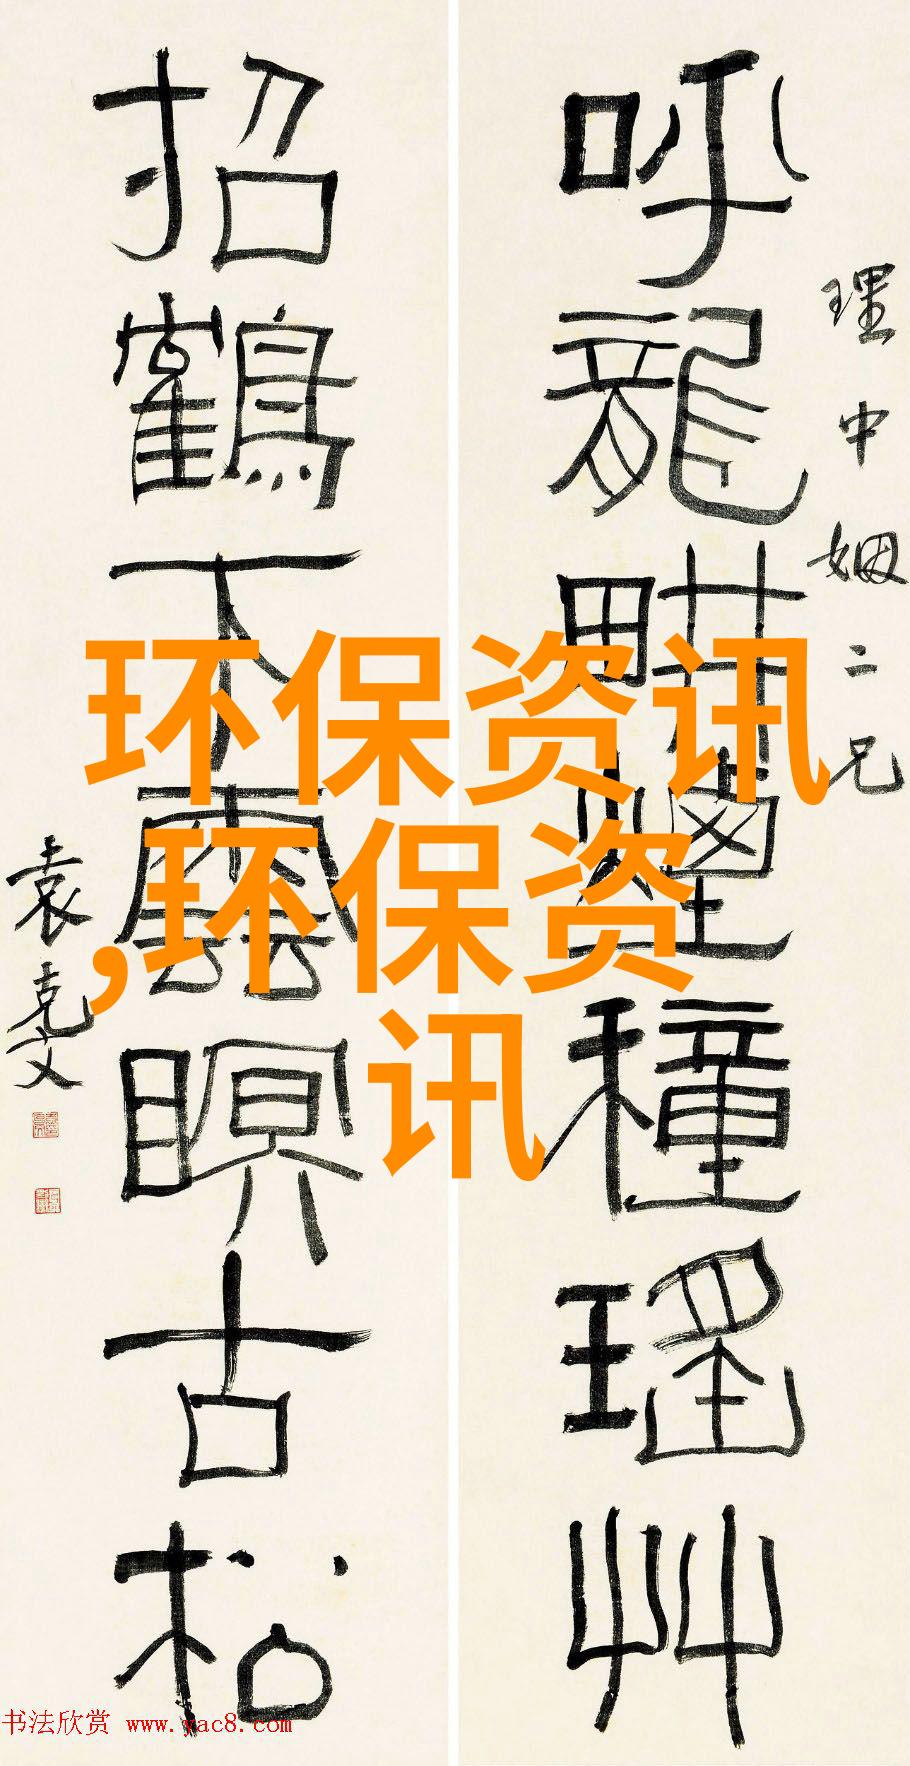 理中姻二兄
呼龍畊煙種瑤艸
招鶴下雲瞑古松
袁克文
环保资讯
,环保资
讯
书法欣赏 www.yac8.com